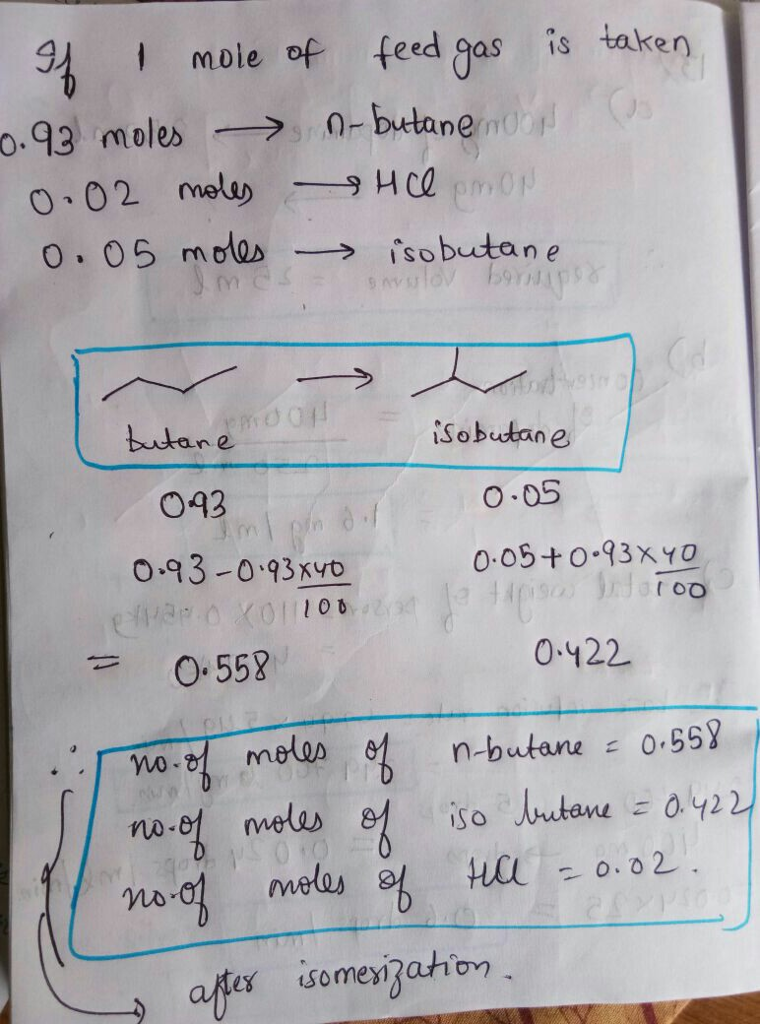 If 1 mole of feed gas is taken
0.93 moles → n-butane
0.02 moles → HCl
0.05 moles → isobutane
→
butane isobutane
0.93 0.05
0.93 - 0.93×40/100 0.05 + 0.93×40/100
= 0.558 0.422
∴ no. of moles of n-butane = 0.558
no. of moles of iso butane = 0.422
no. of moles of HCl = 0.02.
after isomerization.